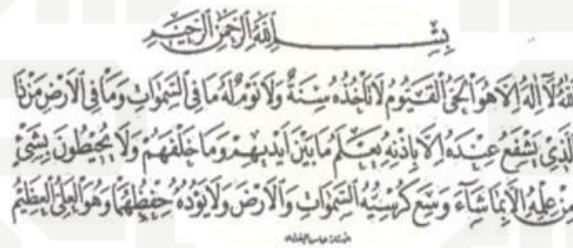 بِسْــــمِ اللّٰهِ الرَّحْمٰنِ الرَّحِيْمِ
اَللّٰهُ لَٓا اِلٰهَ اِلَّا هُوَ اَلْحَىُّ الْقَيُّومُ لَا تَأْخُذُهُ سِنَةٌ وَلَا نَوْمٌ لَهُ مَا فِى السَّمٰوَاتِ وَمَا فِى الْاَرْضِ مَنْ ذَا
الَّذِى يَشْفَعُ عِنْدَهُ اِلَّا بِاِذْنِهِ يَعْلَمُ مَا بَيْنَ اَيْدِيهِمْ وَمَا خَلْفَهُمْ وَلَا يُحِيْطُونَ بِشَىْءٍ
مِنْ عِلْمِهِ اِلَّا بِمَا شَٓاءَ وَسِعَ كُرْسِيُّهُ السَّمٰوَاتِ وَالْاَرْضَ وَلَا يَؤُدُهُ حِفْظُهُمَا وَهُوَ الْعَلِىُّ الْعَظِيْمُ